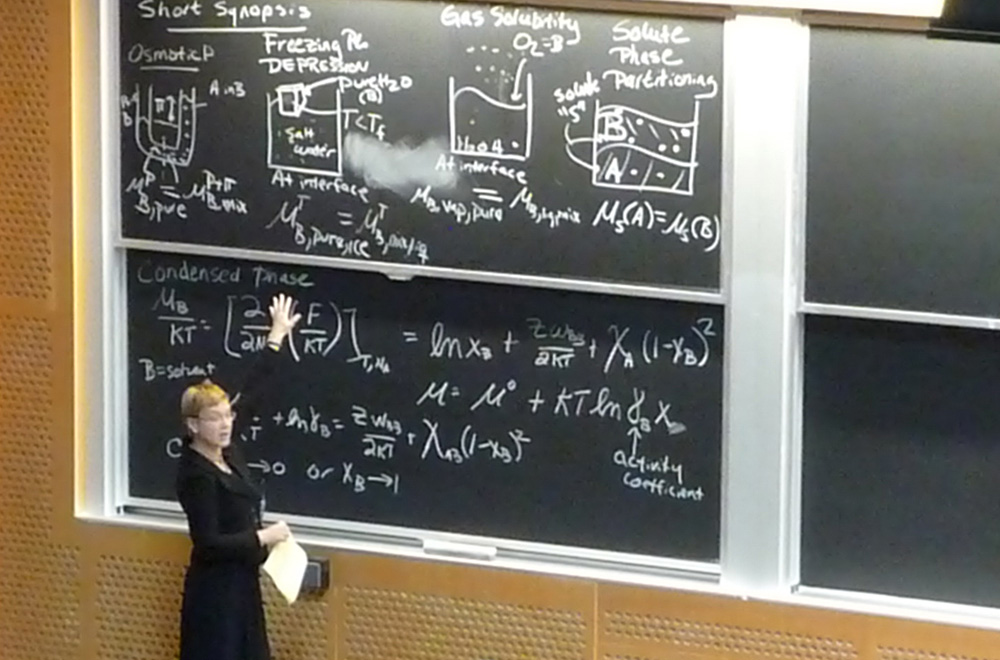 Short Synopsis
Osmotic P
A in B
π
μ^P_B,pure = μ^P+π_B,mix
Freezing Pt.
DEPRESSION
pure H2O
(B)
T<T_f
Salt
water
At interface
μ^T_B,pure,ice = μ^T_B,mix/liq
Gas Solubility
O2=B
H2O A
At interface
μ_B,vap,pure = μ_B,liq mix
Solute
Phase
Partitioning
solute
"S"
B
A
μ_S(A)=μ_S(B)
Condensed phase
μ_B/KT = [∂/∂N (F/KT)]_T,N_A = ln x_B + zw_BB/2KT + χ_A (1-x_B)^2
B=solvent
μ = μ° + KT ln γ_B x
+ln γ_B = zw_BB/2KT + χ_AB(1-x_B)^2
→0 or x_B→1
activity
coefficient